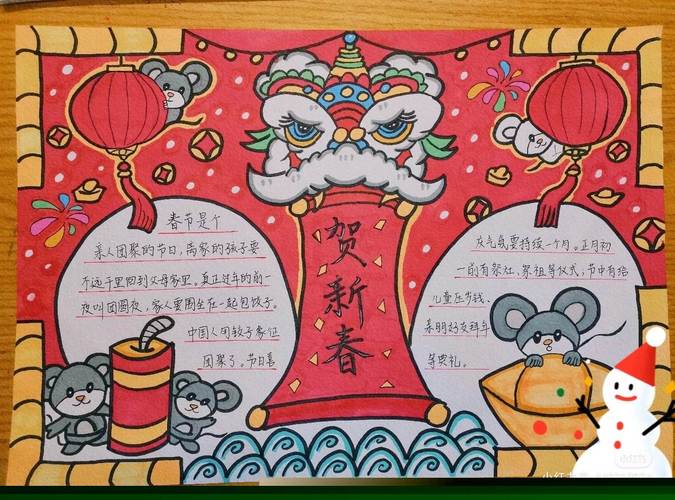 春节是个
亲人团聚的节日，离家的孩子要
不远千里回到父母家里。真正过年的前一
夜叫团圆夜，家人要围坐在一起包饺子。
中国人用教子象征
团聚了。节日喜
贺新春
庆气氛要持续一个月。正月初
一前有祭灶、祭祖等仪式，节中有给
儿童压岁钱、
亲朋好友拜年
等典礼。